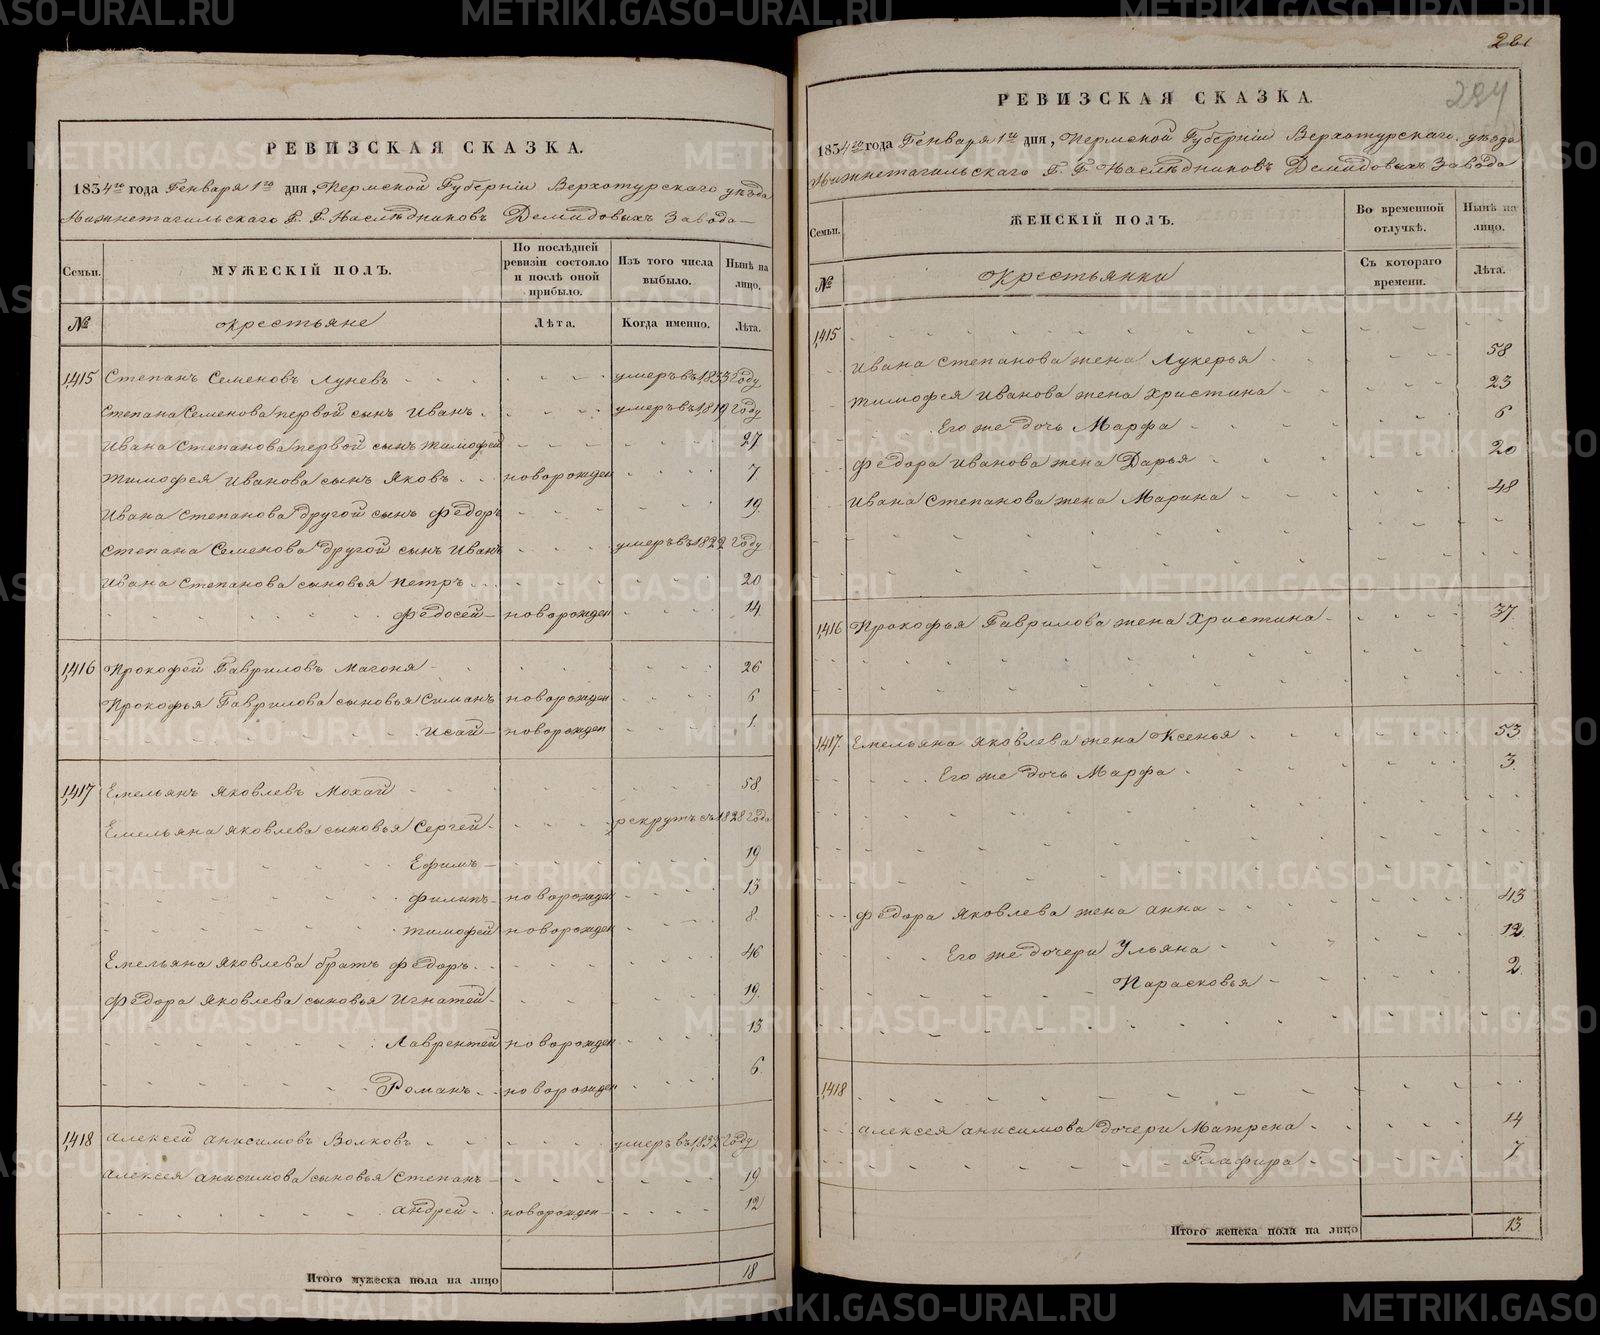 РЕВИЗСКАЯ СКАЗКА.
1834го года Генваря 1го дня, Пермской Губерніи Верхотурскаго уѣзда
Нижнетагильскаго Г. Г. Наслѣдниковъ Демидовыхъ Завода
Семьи.
МУЖЕСКІЙ ПОЛЪ.
По послѣдней ревизіи состояло и послѣ оной прибыло.
Изъ того числа выбыло.
Нынѣ на лицо.
№
крестьяне
Лѣта.
Когда именно.
Лѣта.
1415 Степанъ Семеновъ Луневъ умеръ въ 1833 году
Степана Семенова первой сынъ Иванъ умеръ въ 1819 году
Ивана Степанова первой сынъ Тимофей 27
Тимофея Иванова сынъ Яковъ новорожден 7.
Ивана Степанова другой сынъ Федоръ 19.
Степана Семенова другой сынъ Иванъ умеръ въ 1822 году
Ивана Степанова сыновья Петръ 20
Федосей новорожден 14.
1416 Прокофей Гавриловъ Магоня 26
Прокофья Гаврилова сыновья Симанъ новорожден 6
Исай новорожден 1.
1417 Емельянъ Яковлевъ Мохай 58.
Емельяна Яковлева сыновья Сергей рекрутъ съ 1828 года
Ефимъ 19
Филипъ новорожден 13
Тимофей новорожден 8.
Емельяна Яковлева братъ Федоръ 46
Федора Яковлева сыновья Игнатей 19.
Лаврентей новорожден 13
Романъ новорожден 6.
1418 Алексей Анисимовъ Волковъ умеръ въ 1832 году
Алексея Анисимова сыновья Степанъ 19
Андрей новорожден 12
Итого мужеска пола на лицо 18
284
РЕВИЗСКАЯ СКАЗКА.
1834го года Генваря 1го дня, Пермской Губерніи Верхотурскаго уѣзда
Нижнетагильскаго Г. Г. Наслѣдниковъ Демидовыхъ Завода
Семьи.
ЖЕНСКІЙ ПОЛЪ.
Во временной отлучкѣ.
Нынѣ на лицо.
№
Крестьянки
Съ котораго времени.
Лѣта.
1415
Ивана Степанова жена Лукерья 58
Тимофея Иванова жена Христина 23
Его же дочь Марфа 6
Федора Иванова жена Дарья 20
Ивана Степанова жена Марина 48
1416 Прокофья Гаврилова жена Христина 37.
1417. Емельяна Яковлева жена Ксенья 53
Его же дочь Марфа 3.
Федора Яковлева жена Анна 43
Его же дочери Ульяна 12.
Парасковья 2.
1418
Алексея Анисимова дочери Матрена 14
Глафира 7
Итого женска пола на лицо 13.
METRIKI.GASO-URAL.RU